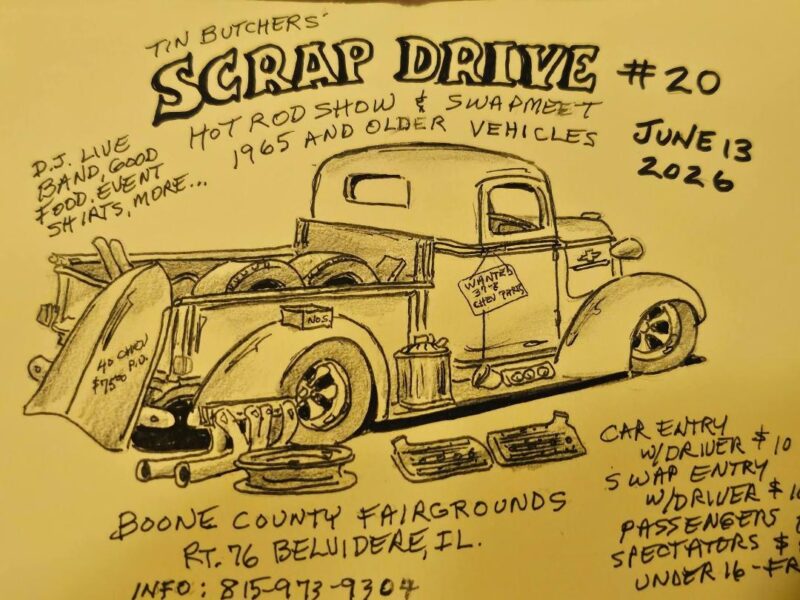 TIN BUTCHERS'
SCRAP DRIVE #20
HOT ROD SHOW & SWAPMEET
1965 AND OLDER VEHICLES
JUNE 13
2026
D.J. LIVE
BAND, GOOD
FOOD. EVENT
SHIRTS, MORE...
WANTED
37-8
CHEV PARTS
N.O.S.
40 CHEV
$75.00
BOONE COUNTY FAIRGROUNDS
RT. 76 BELVIDERE, IL.
INFO: 815-973-9304
CAR ENTRY
W/DRIVER $10
SWAP ENTRY
W/DRIVER $
PASSENGERS
SPECTATORS $
UNDER 16 - FR